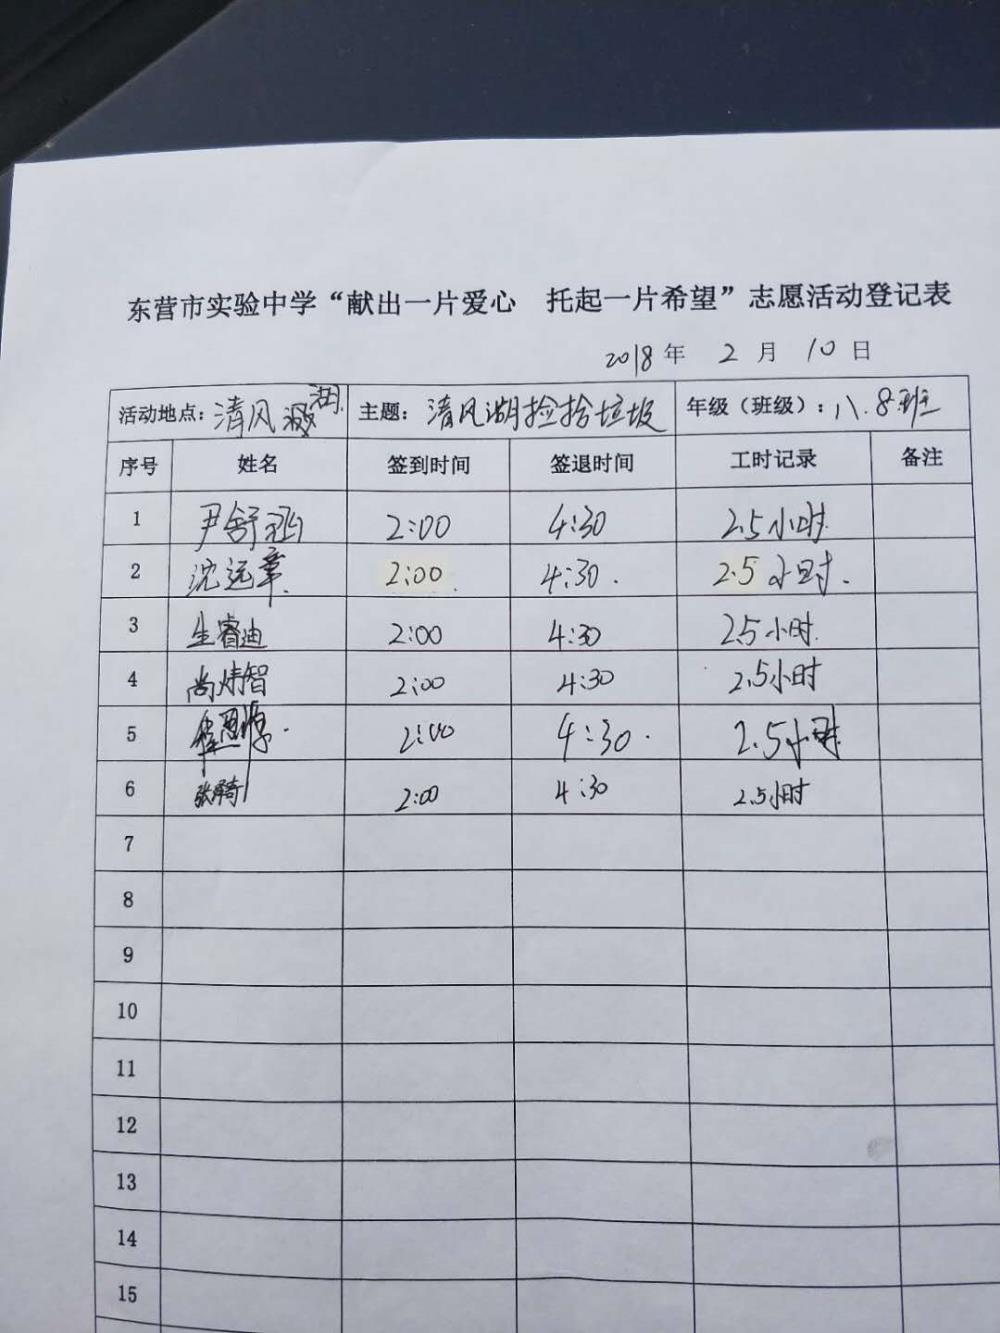 东营市实验中学“献出一片爱心 托起一片希望”志愿活动登记表
2018年 2月 10日
活动地点：清风湖 主题：清风湖捡拾垃圾 年级（班级）：八.8班
序号 姓名 签到时间 签退时间 工时记录 备注
1 尹舒 2:00 4:30 2.5小时
2 沈远章 2:00 4:30. 2.5小时.
3 生睿迪 2:00 4:30 2.5小时.
4 尚炜智 2:00 4:30 2.5小时
5 2:00 4:30. 2.5小时
6 张 2:00 4:30 2.5小时
7
8
9
10
11
12
13
14
15